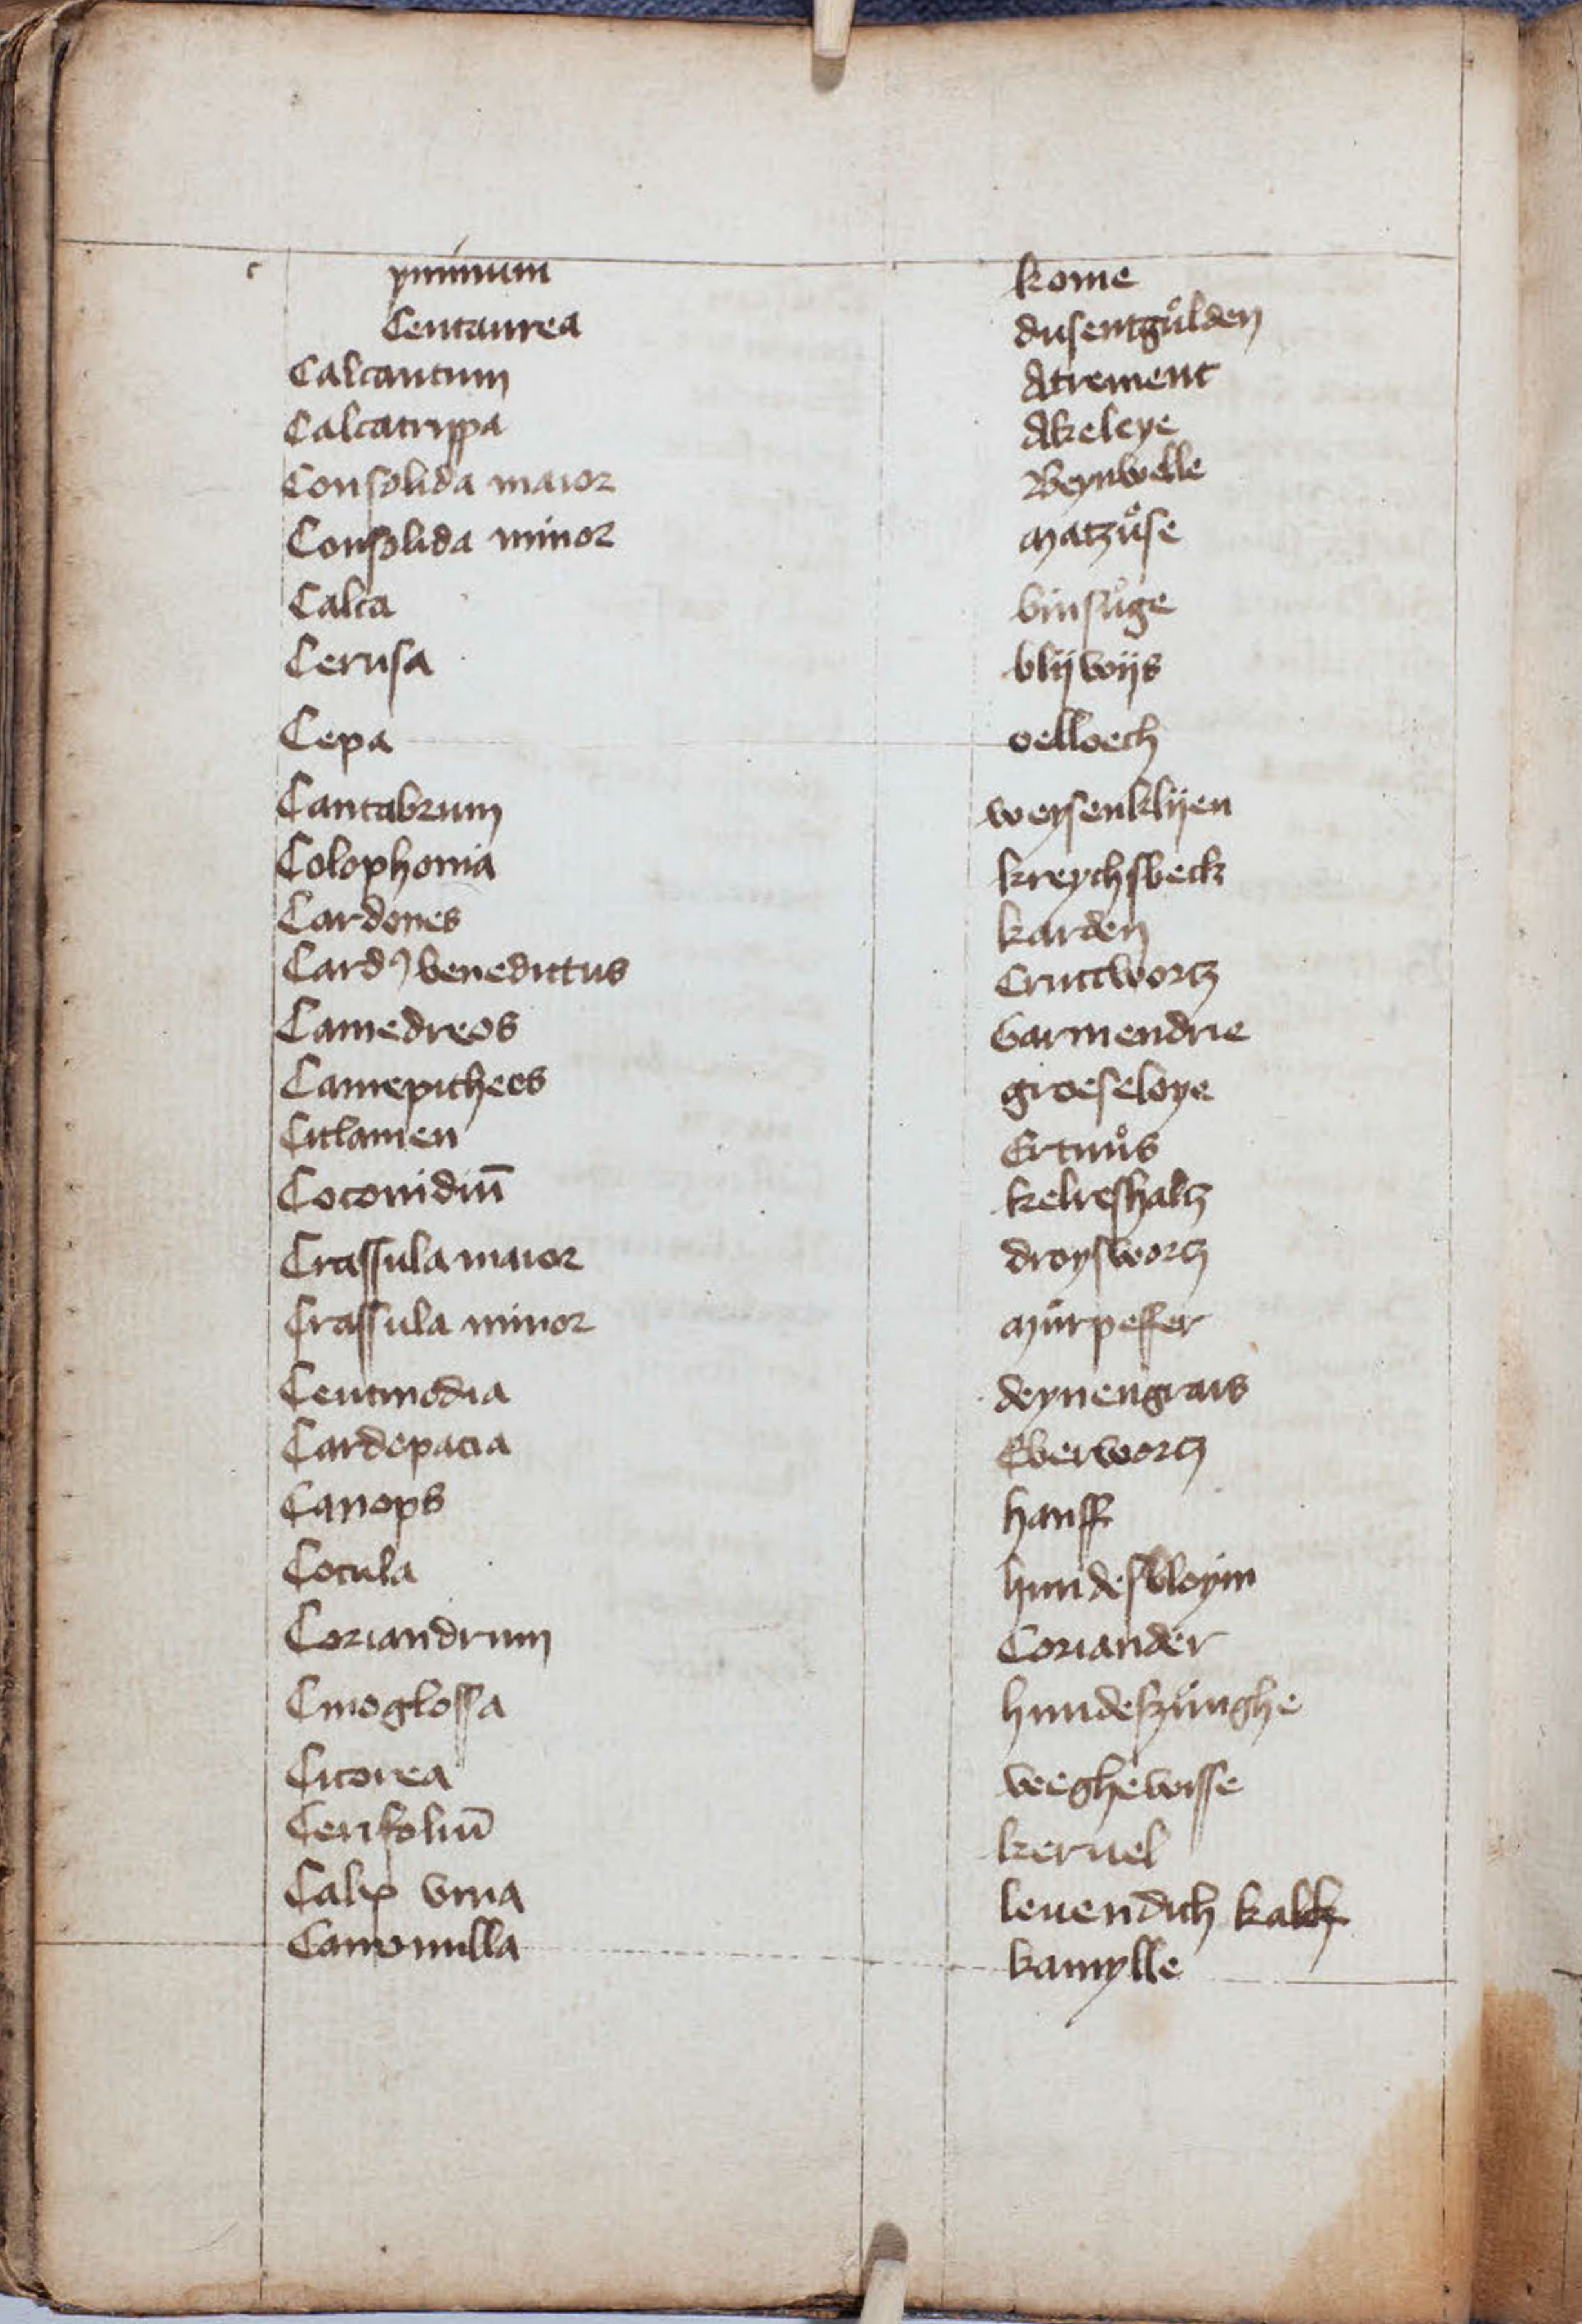 c yminum kome
Centaurea dusentgůlden
Calcantum Atrement
Calcatrippa Akeleye
Consolida maior Beynwelle
Consolida minor Matzůse
Calca binsůge
Cerusa blijwijs
Cepa oelloech
Cantabrum weysenklijen
Colophonia kreychsbeck
Cardones karden
Cardꝰ benedictus Cructwortz
Camedreos Garmendrie
Camepitheos groeseloye
Ciclamen Ertnůs
Coconidiū kelreshaltz
Crassula maior droyswortz
Crassula minor Můrpeffer
Centinodia deynengrais
Cardopacia Eberwortz
Canops hanff
Cocula hundesbloym
Coriandrum Coriander
Cinoglossa hundeszůnghe
Cicorea weeghewisse
Cerifoliū keruel
Calx viua leuendich kalk
Camomilla kamylle